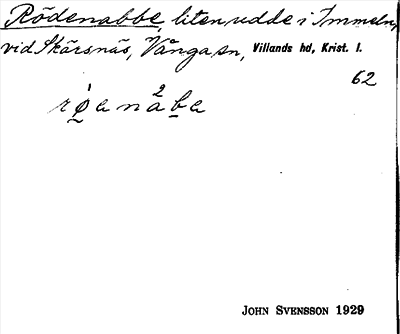 Rödenabbe, liten udde i Immeln,
vid Skärsnäs, Vånga sn, Villands hd, Krist. l.
62
JOHN SVENSSON 1929